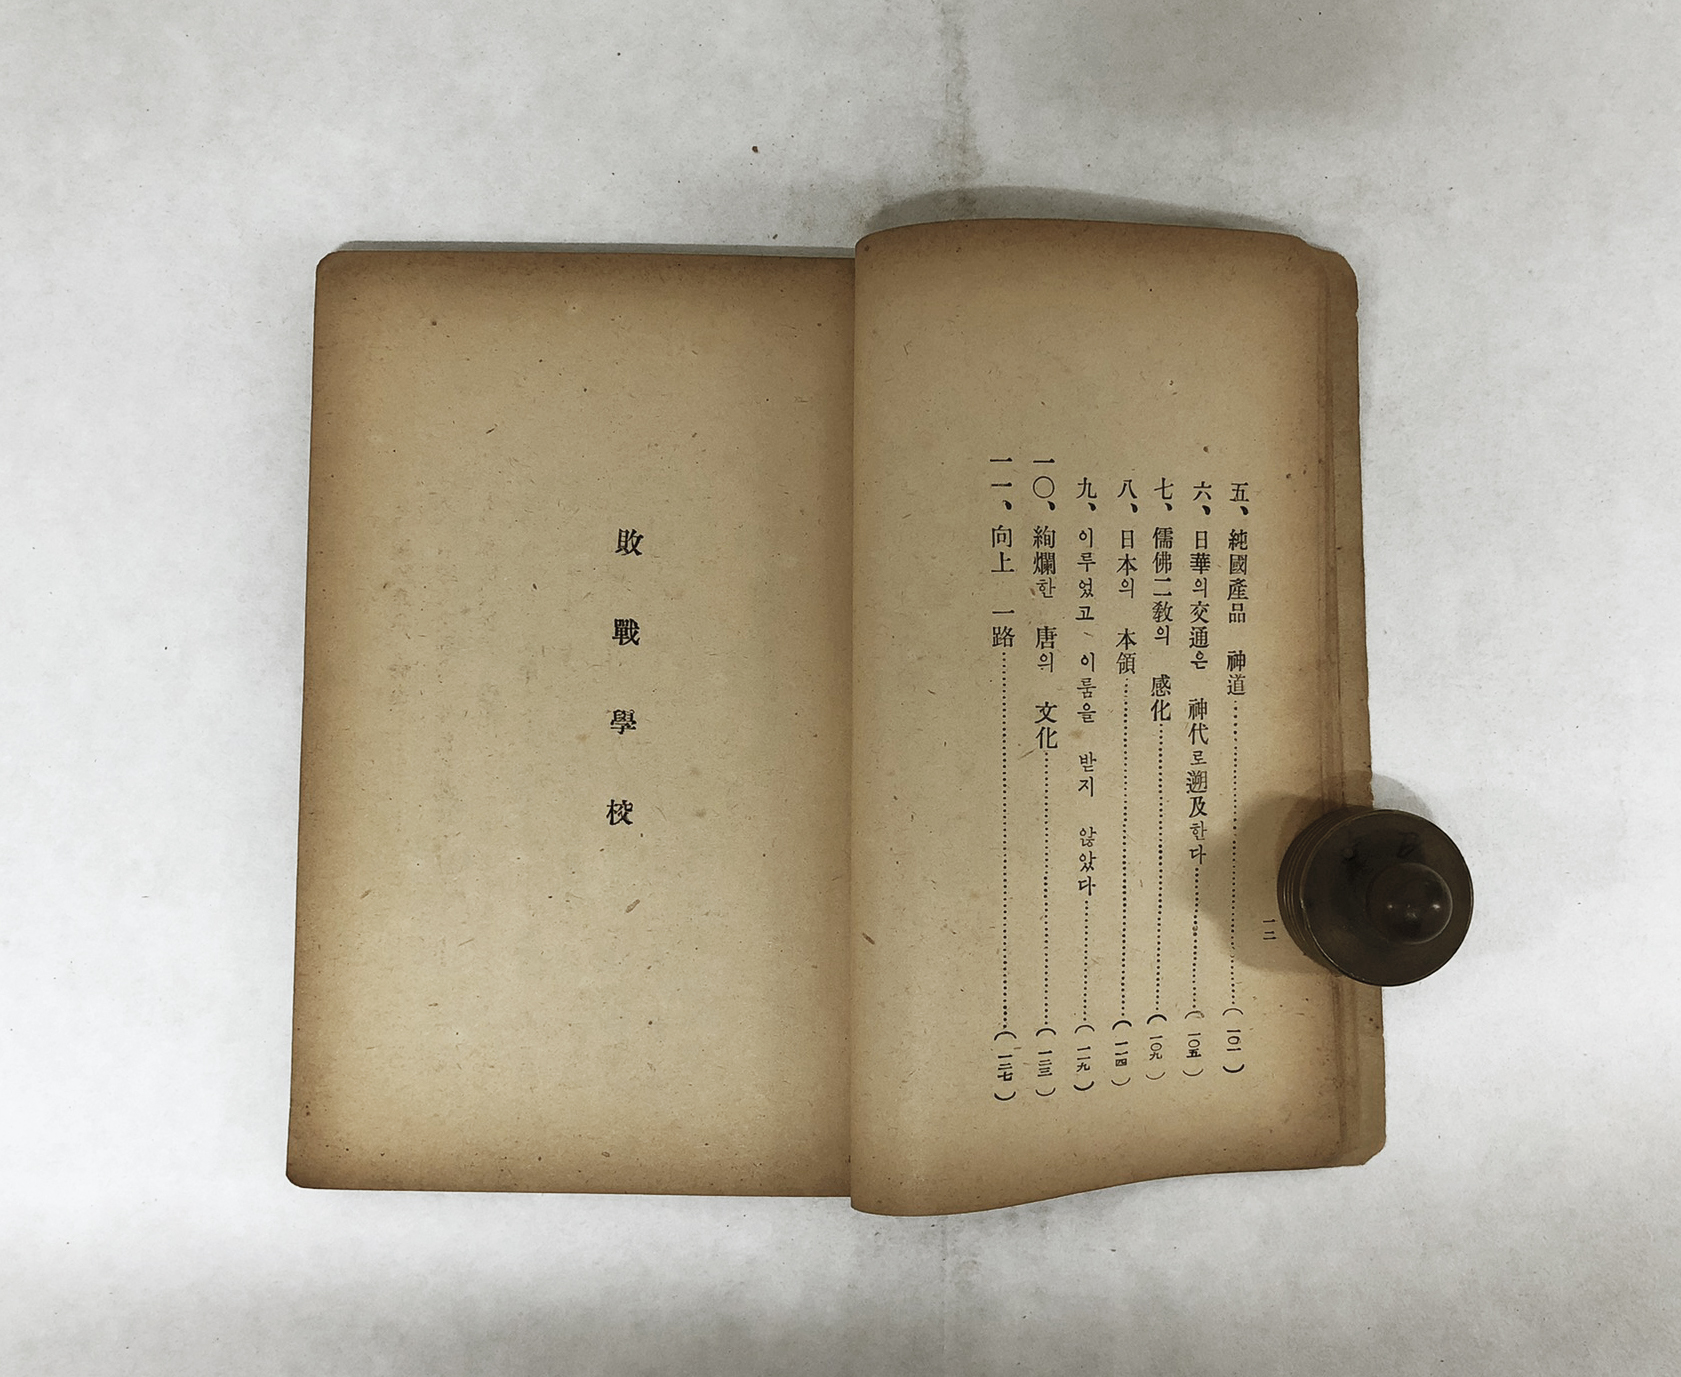 五、純國產品 神道……(一〇一)
六、日華의交通은 神代로遡及한다……(一〇五)
七、儒佛二敎의 感化……(一〇九)
八、日本의 本領……(一一四)
九、이루었고、이룸을 받지 않았다……(一一九)
一〇、絢爛한 唐의 文化……(一二三)
一一、向上 一路……(一二七)
一二
敗戰學校